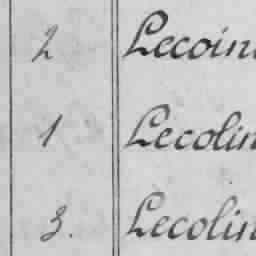 2 Lecoin
1 Lecolin
3. Lecolin